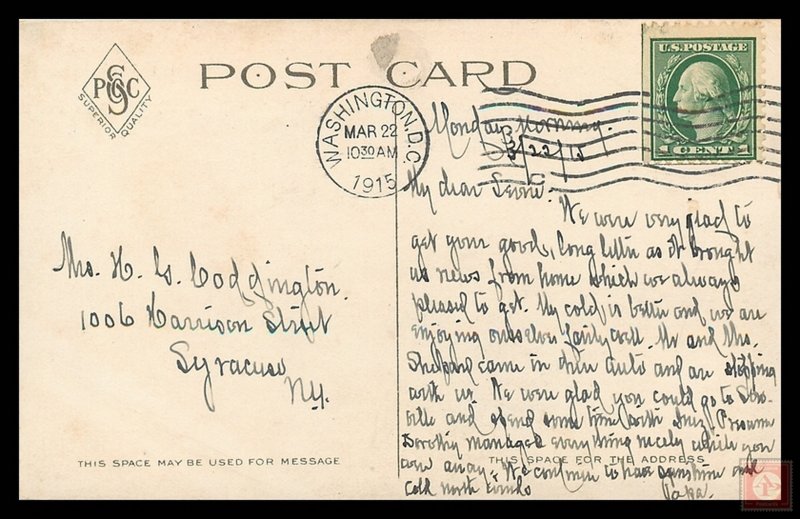 POST CARD
PSC
SUPERIOR QUALITY
U.S. POSTAGE
1 CENT 1
WASHINGTON, D.C.
MAR 22
10 30 AM
1915
Monday Morning.
3/22/15
My dear
We were very glad to
get your good, long letter as it brought
us news from home which we always
pleased to get. My cold is better and we are
enjoying ourselves fairly well. Mr and Mrs.
Shepard came in their auto and are stopping
with us. We were glad you could go to
ville and spend some time with Presume
Dorothy managed everything nicely while you
were away. We continue to have sunshine and
cold north winds
Papa.
Mrs. H. G. Coddington.
1006 Harrison Street
Syracuse
N.Y.
THIS SPACE MAY BE USED FOR MESSAGE
THIS SPACE FOR THE ADDRESS